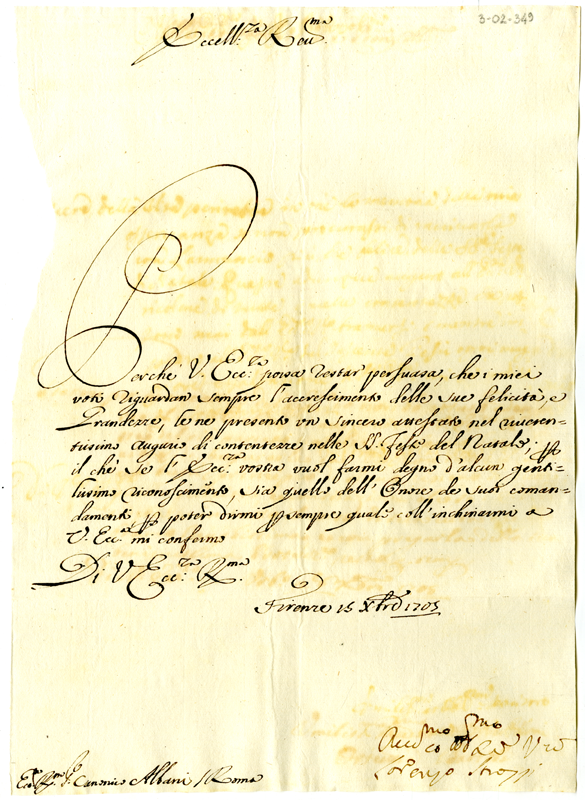 3-02-349
Eccell:za Reu:ma
Perche V. Ecc:za possa restar persuasa, che i miei
voti riguardan sempre l'accrescimento delle sue felicità, e
Grandezze, le ne presento un sincero attestato nel riueren-
tissimo augurio di contentezze nelle SS. Feste del Natale;
il che se l'Ecc:za vostra vuol farmi degno d'alcun genti-
lissimo riconoscimento, sia quello dell'Onore de suoi coman-
damenti p poter dirmi p sempre quale coll'inchinarmi a
V. Ecc:a mi confermo
Di V. Ecc:za R:ma
Firenze 15 Xbre 1703
Lorenzo Strozzi
Canonico Albani Roma